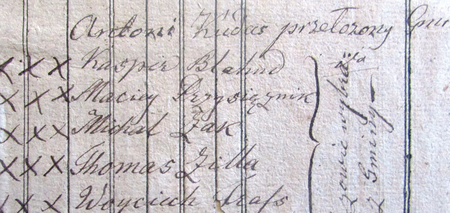 Antoni Kudas przełożony Gmi
xxx Kasper Blahud
xxx Maciey Przysiężnik
xxx Michal Żak
xxx Thomas Zilla
xxx Woyciech
z Gminy